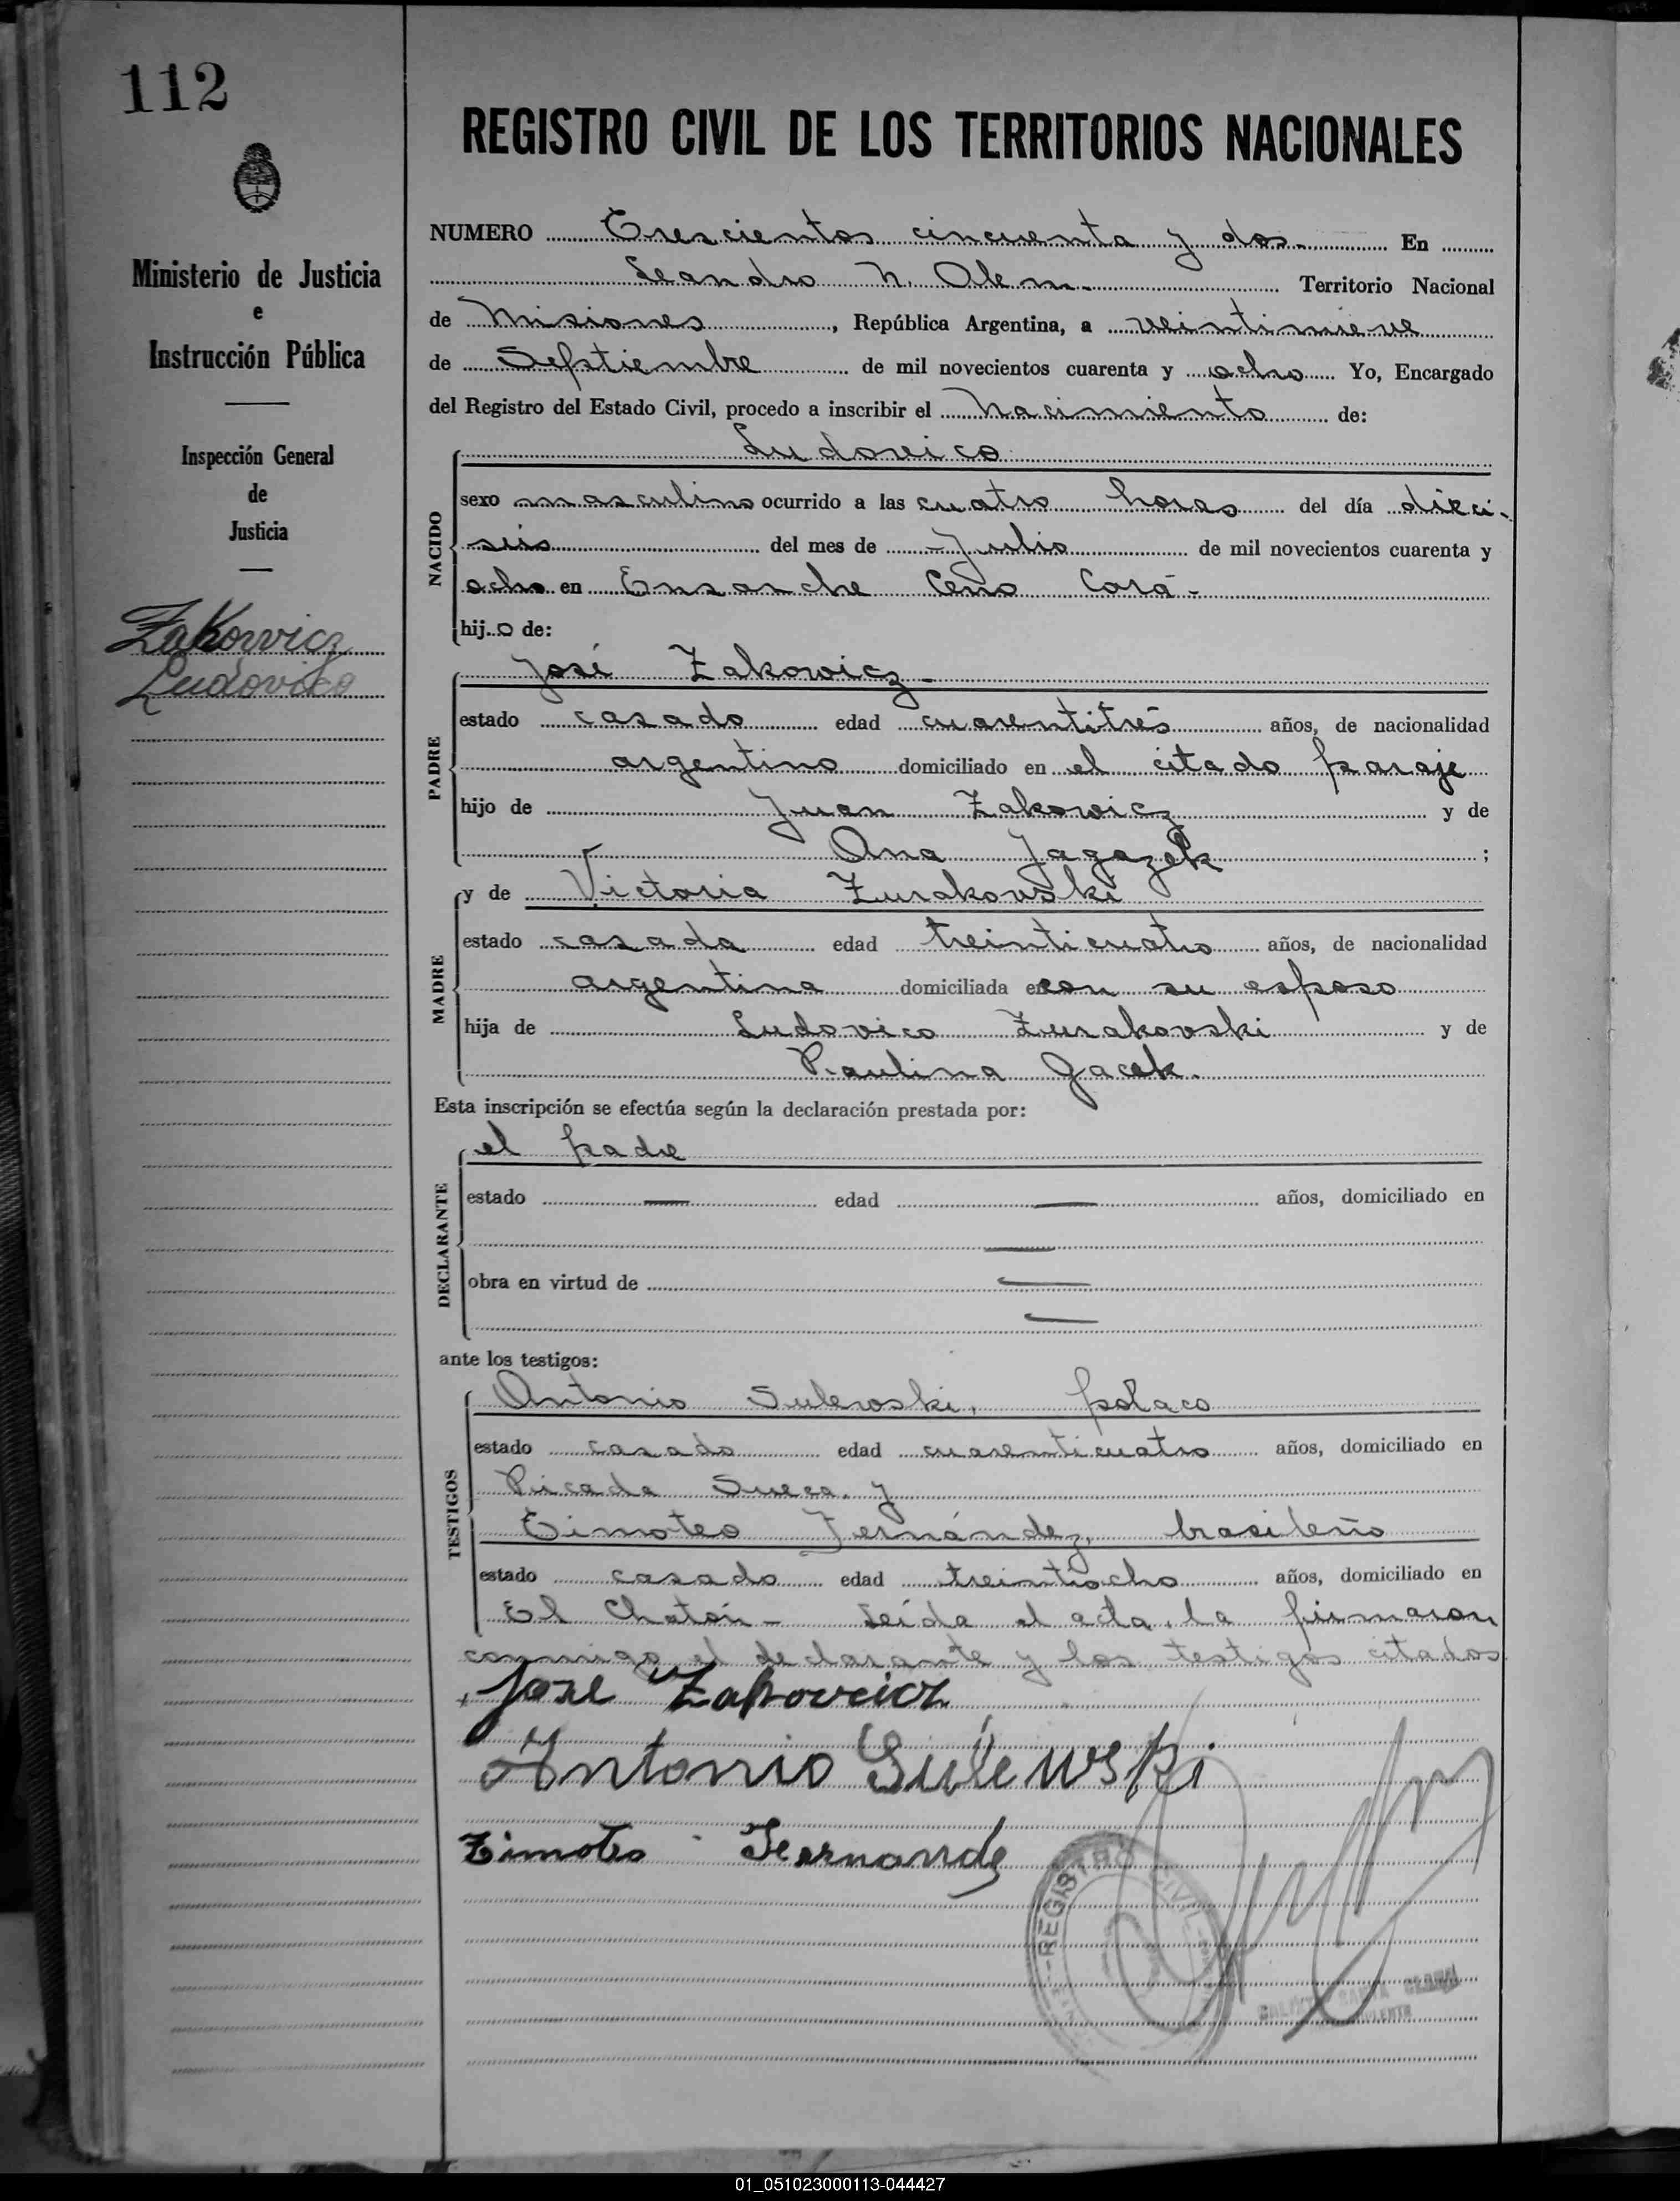 112
REGISTRO CIVIL DE LOS TERRITORIOS NACIONALES
Ministerio de Justicia
e
Instrucción Pública
Inspección General
de
Justicia
Zakowicz
Ludovico
NUMERO Trescientos cincuenta y dos. En
Leandro N. Alem. Territorio Nacional
de Misiones, República Argentina, a veintinueve
de Septiembre de mil novecientos cuarenta y ocho Yo, Encargado
del Registro del Estado Civil, procedo a inscribir el Nacimiento de:
NACIDO
Ludovico
sexo masculino ocurrido a las cuatro horas del día dieci-
seis del mes de Julio de mil novecientos cuarenta y
ocho en Ensanche Cerro Corá-
hij.o de:
PADRE
José Zakowicz-
estado casado edad cuarentitrés años, de nacionalidad
argentino domiciliado en el citado paraje
hijo de Juan Zakowicz y de
Ana Jagazek ;
MADRE
y de Victoria Zurakowski
estado casada edad treinticuatro años, de nacionalidad
argentina domiciliada con su esposo
hija de Ludovico Zurakovski y de
Paulina Gacek.
Esta inscripción se efectúa según la declaración prestada por:
DECLARANTE
el padre
estado — edad — años, domiciliado en
—
obra en virtud de —
—
ante los testigos:
TESTIGOS
Antonio Sulewski, polaco
estado casado edad cuarenticuatro años, domiciliado en
Picada Sueca. y
Timoteo Fernández, brasileño
estado casado edad treintiocho años, domiciliado en
El Chatón- Leída el acta, la firmaron
conmigo el declarante y los testigos citados
Jose Zakowicz
Antonio Sulewski
Timoteo Fernandz
REGISTRO CIVIL
SANTA
01_051023000113-044427